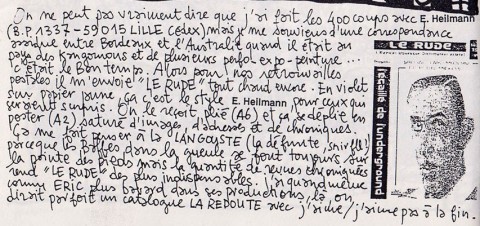 On ne peut pas vraiment dire que j'ai fait les 400 coups avec E. Heilmann
(B.P. 1337 - 59015 LILLE Cedex) mais je me souviens d'une correspondance
assidue entre Bordeaux et l'Australie quand il était au
pays des kangourous et de plusieurs perfos expo-peinture...
C'était le Bon temps. Alors pour nos retrouvailles
postales on m'envoie "LE RUDE" tout chaud encre. En violet
sur papier jaune, ça c'est le style E. Heilmann pour ceux qui
seraient surpris. On le reçoit plié (A6) et ça se déplie en
poster (A2) saturé d'images, d'adresses et de chroniques.
Ça me fait penser à la LANGOUSTE (la défunte, sniff!)
parceque les Balles dans la gueule se font toujours sur
la pointe des pieds mais la quantité de revues chroniquées
rend "LE RUDE" des plus indispensables. J'ai quand même
connu ERIC plus bavard dans ses productions, là on
dirait parfois un catalogue LA REDOUTE avec j'aime/j'aime pas à la fin.
LE RUDE
racaille de l'underground